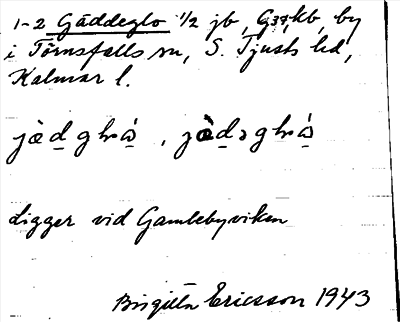 1-2 Gäddeglo 1/2 jb, G37, kb, by
i Törnsfalls sn, S. Tjusts hd,
Kalmar l.
ligger vid Gamlebyviken
Birgitta Ericsson 1943